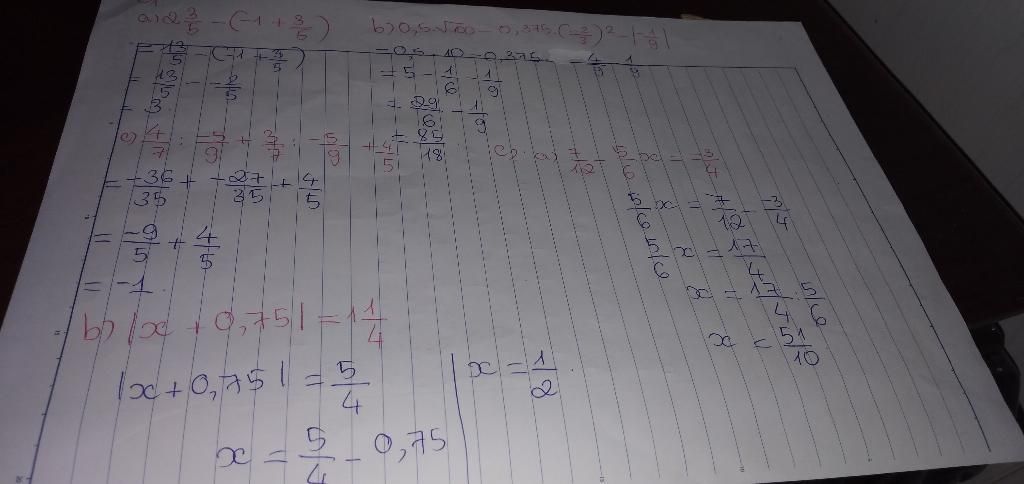 a) 2 3/5 - (-1 + 3/5)
= 13/5 - (-1 + 3/5)
= 13/5 - -2/5
= 3.
b) 0,5.√100 - 0,375.(-2/3)² - |-1/9|
= 0,5 . 10 - 0,375. 4/9 - 1/9
= 5 - 1/6 - 1/9
= 29/6 - 1/9
= 85/18
c) 4/7 : -5/9 + 3/7 : -5/9 + 4/5
= -36/35 + -27/35 + 4/5
= -9/5 + 4/5
= -1.
a) 7/12 - 5/6 x = -3/4
5/6 x = 7/12 - -3/4
5/6 x = 17/4
x = 17/4 : 5/6
x = 51/10
b) |x + 0,75| = 1 1/4
|x + 0,75| = 5/4
x = 5/4 - 0,75
x = 1/2.